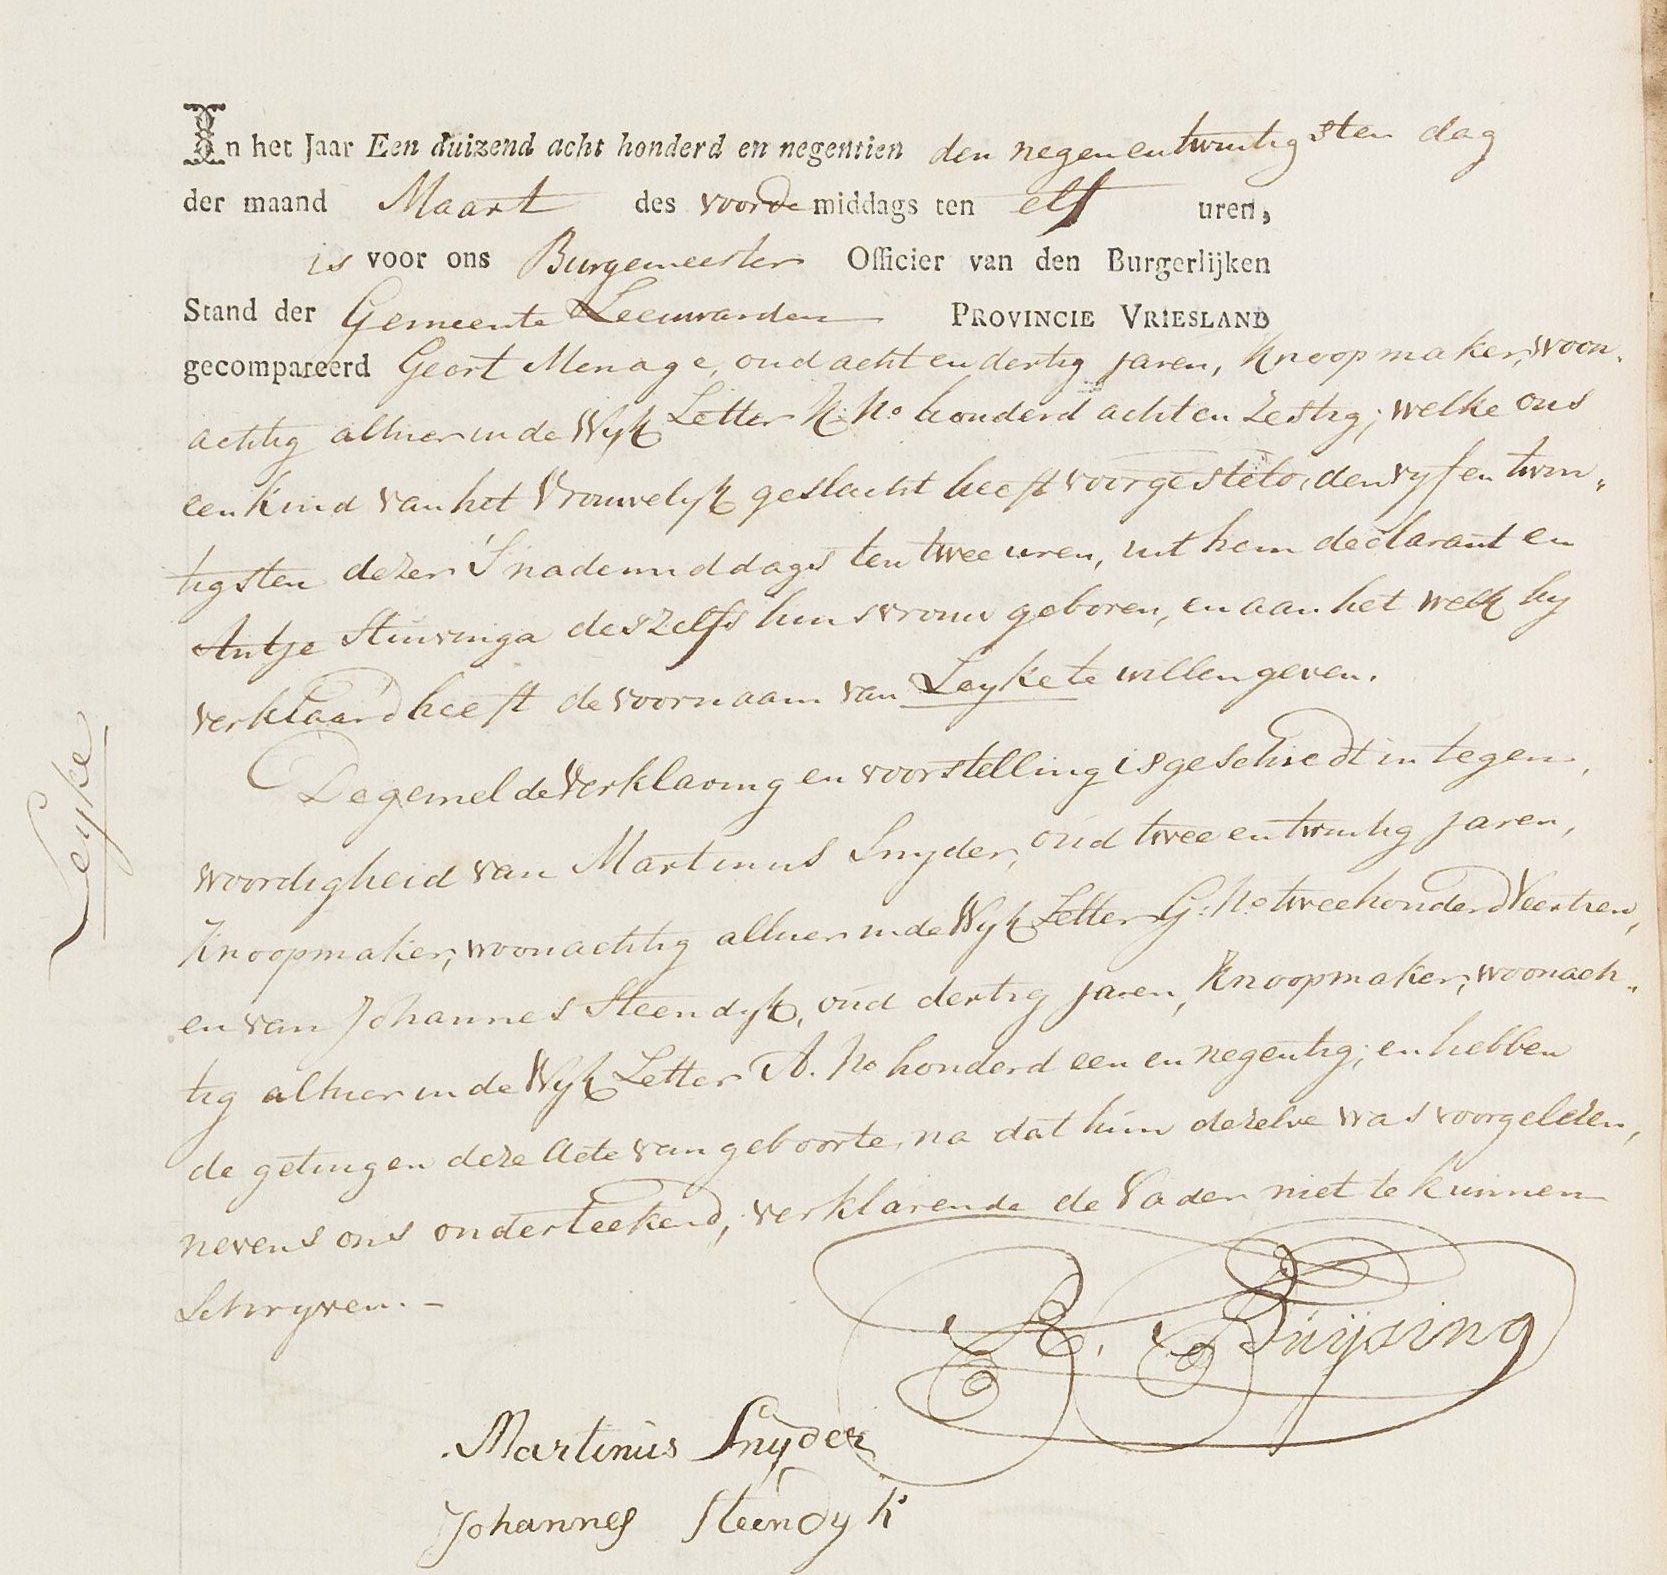 In het Jaar Een duizend acht honderd en negentien den negenentwintigsten dag
der maand Maart des voorde middags ten elf uren,
is voor ons Burgemeester Officier van den Burgerlijken
Stand der Gemeente Leeuwarden PROVINCIE VRIESLAND
gecompareerd Geert Menage, oud acht en dertig jaren, Knoopmaker, woon„
achtig alhier in de Wyk Letter K. No honderd acht en Zestig; welke ons
een kind van het Vrouwelyk geslacht heeft voorgesteld, den vyf en twin„
tigsten dezer S'nademiddags ten twee uren, uit hem declarant en
Antje Stuivinga deszelfs huisvrouw geboren, en aan het welk hy
verklaard heeft de voornaam van Leyke te willen geven.
De gemelde Verklaring en voorstelling is geschiedt in tegen„
woordigheid van Martinus Snyder, oud twee en twintig jaren,
Knoopmaker, woonachtig alhier in de Wyk Letter G. No tweehonderd Veertien,
en van Johannes Steendyk, oud dertig jaren, Knoopmaker, woonach„
tig alhier in de Wyk Letter A. No honderd een en negentig; en hebben
de getuigen deze Acte van geboorte, na dat hun dezelve was voorgelezen,
nevens ons onderteekend, verklarende de Vader niet te kunnen
Schryven. –
Martinus Snyder
Johannes Steendyk
Leyke